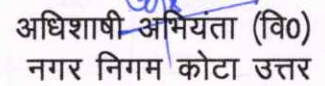 अधिशाषी अभियंता (वि0)
नगर निगम कोटा उत्तर